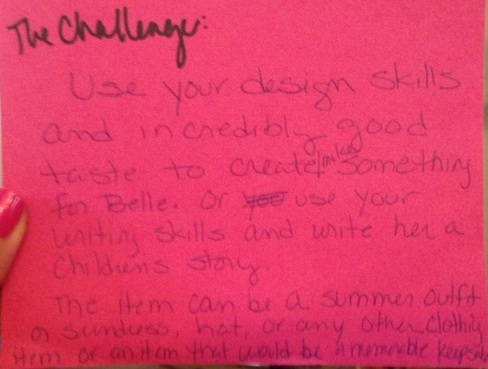 The Challenge:
Use your design skills
and incredibly good
taste to create/make something
for Belle. Or you use your
writing skills and write her a
Childrens story.
The item can be a summer outfit
or sundress, hat, or any other clothing
item or an item that would be a memorable keepsake